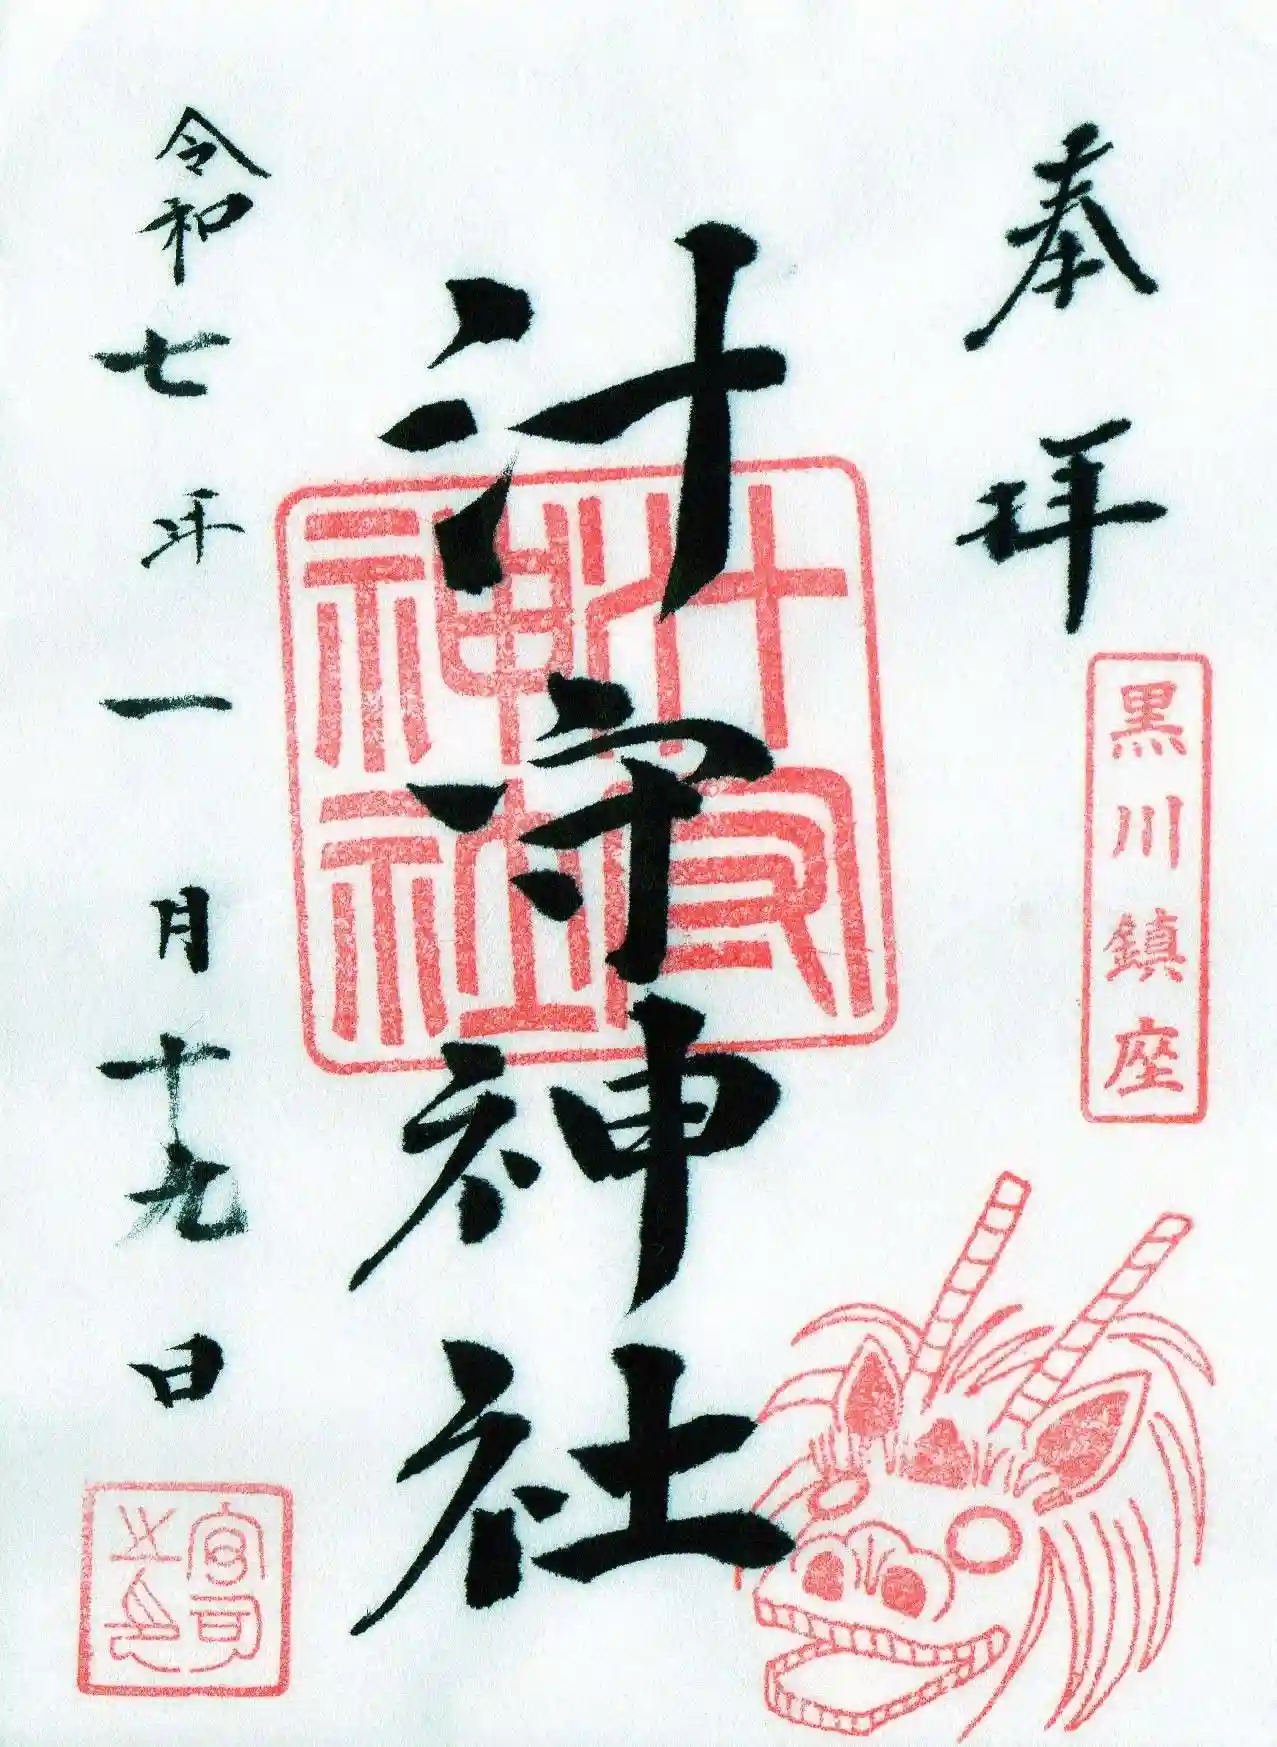 奉拝
黒川鎮座
汁守神社
汁守
神社
令和七年一月十九日
宮司